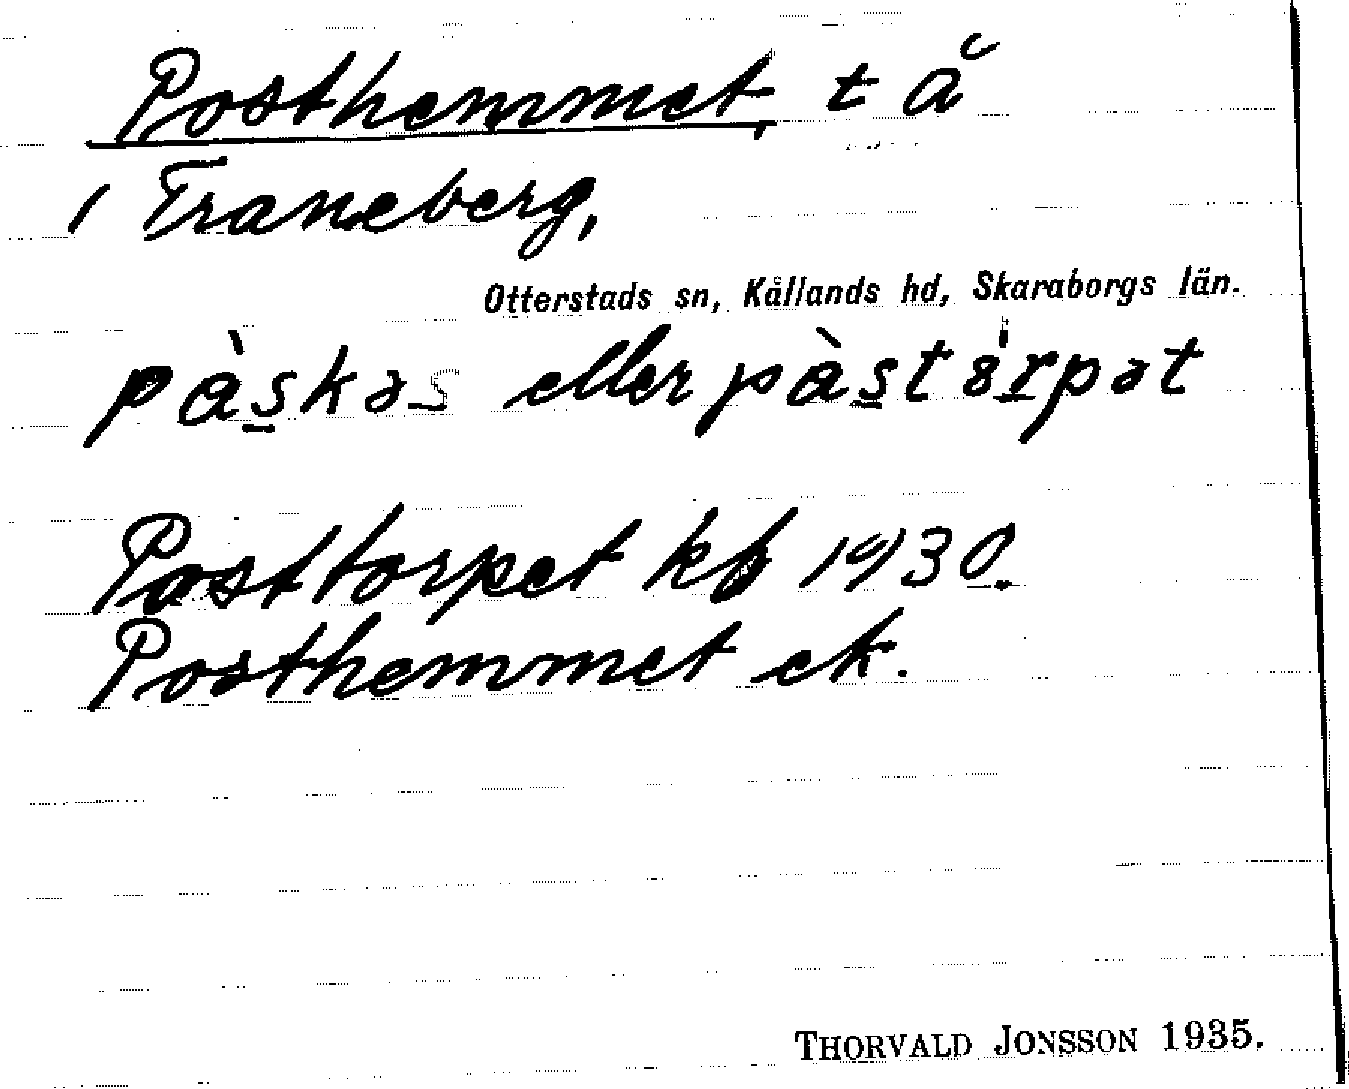 Posthemmet, t ă
i Traneberg,
Otterstads sn, Kållands hd, Skaraborgs län.
pàs̲kəs eller pàs̲tör̲pət
Posttorpet kb 1930.
Posthemmet ek.
THORVALD JONSSON 1935.